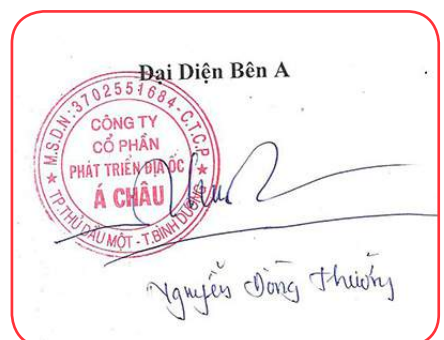 Đại Diện Bên A
M.S.D.N: 3702551684 - C.T.C.P
CÔNG TY
CỔ PHẦN
PHÁT TRIỂN ĐỊA ỐC
Á CHÂU
TP.THỦ DẦU MỘT - T.BÌNH DƯƠNG
Nguyễn Đông Thường